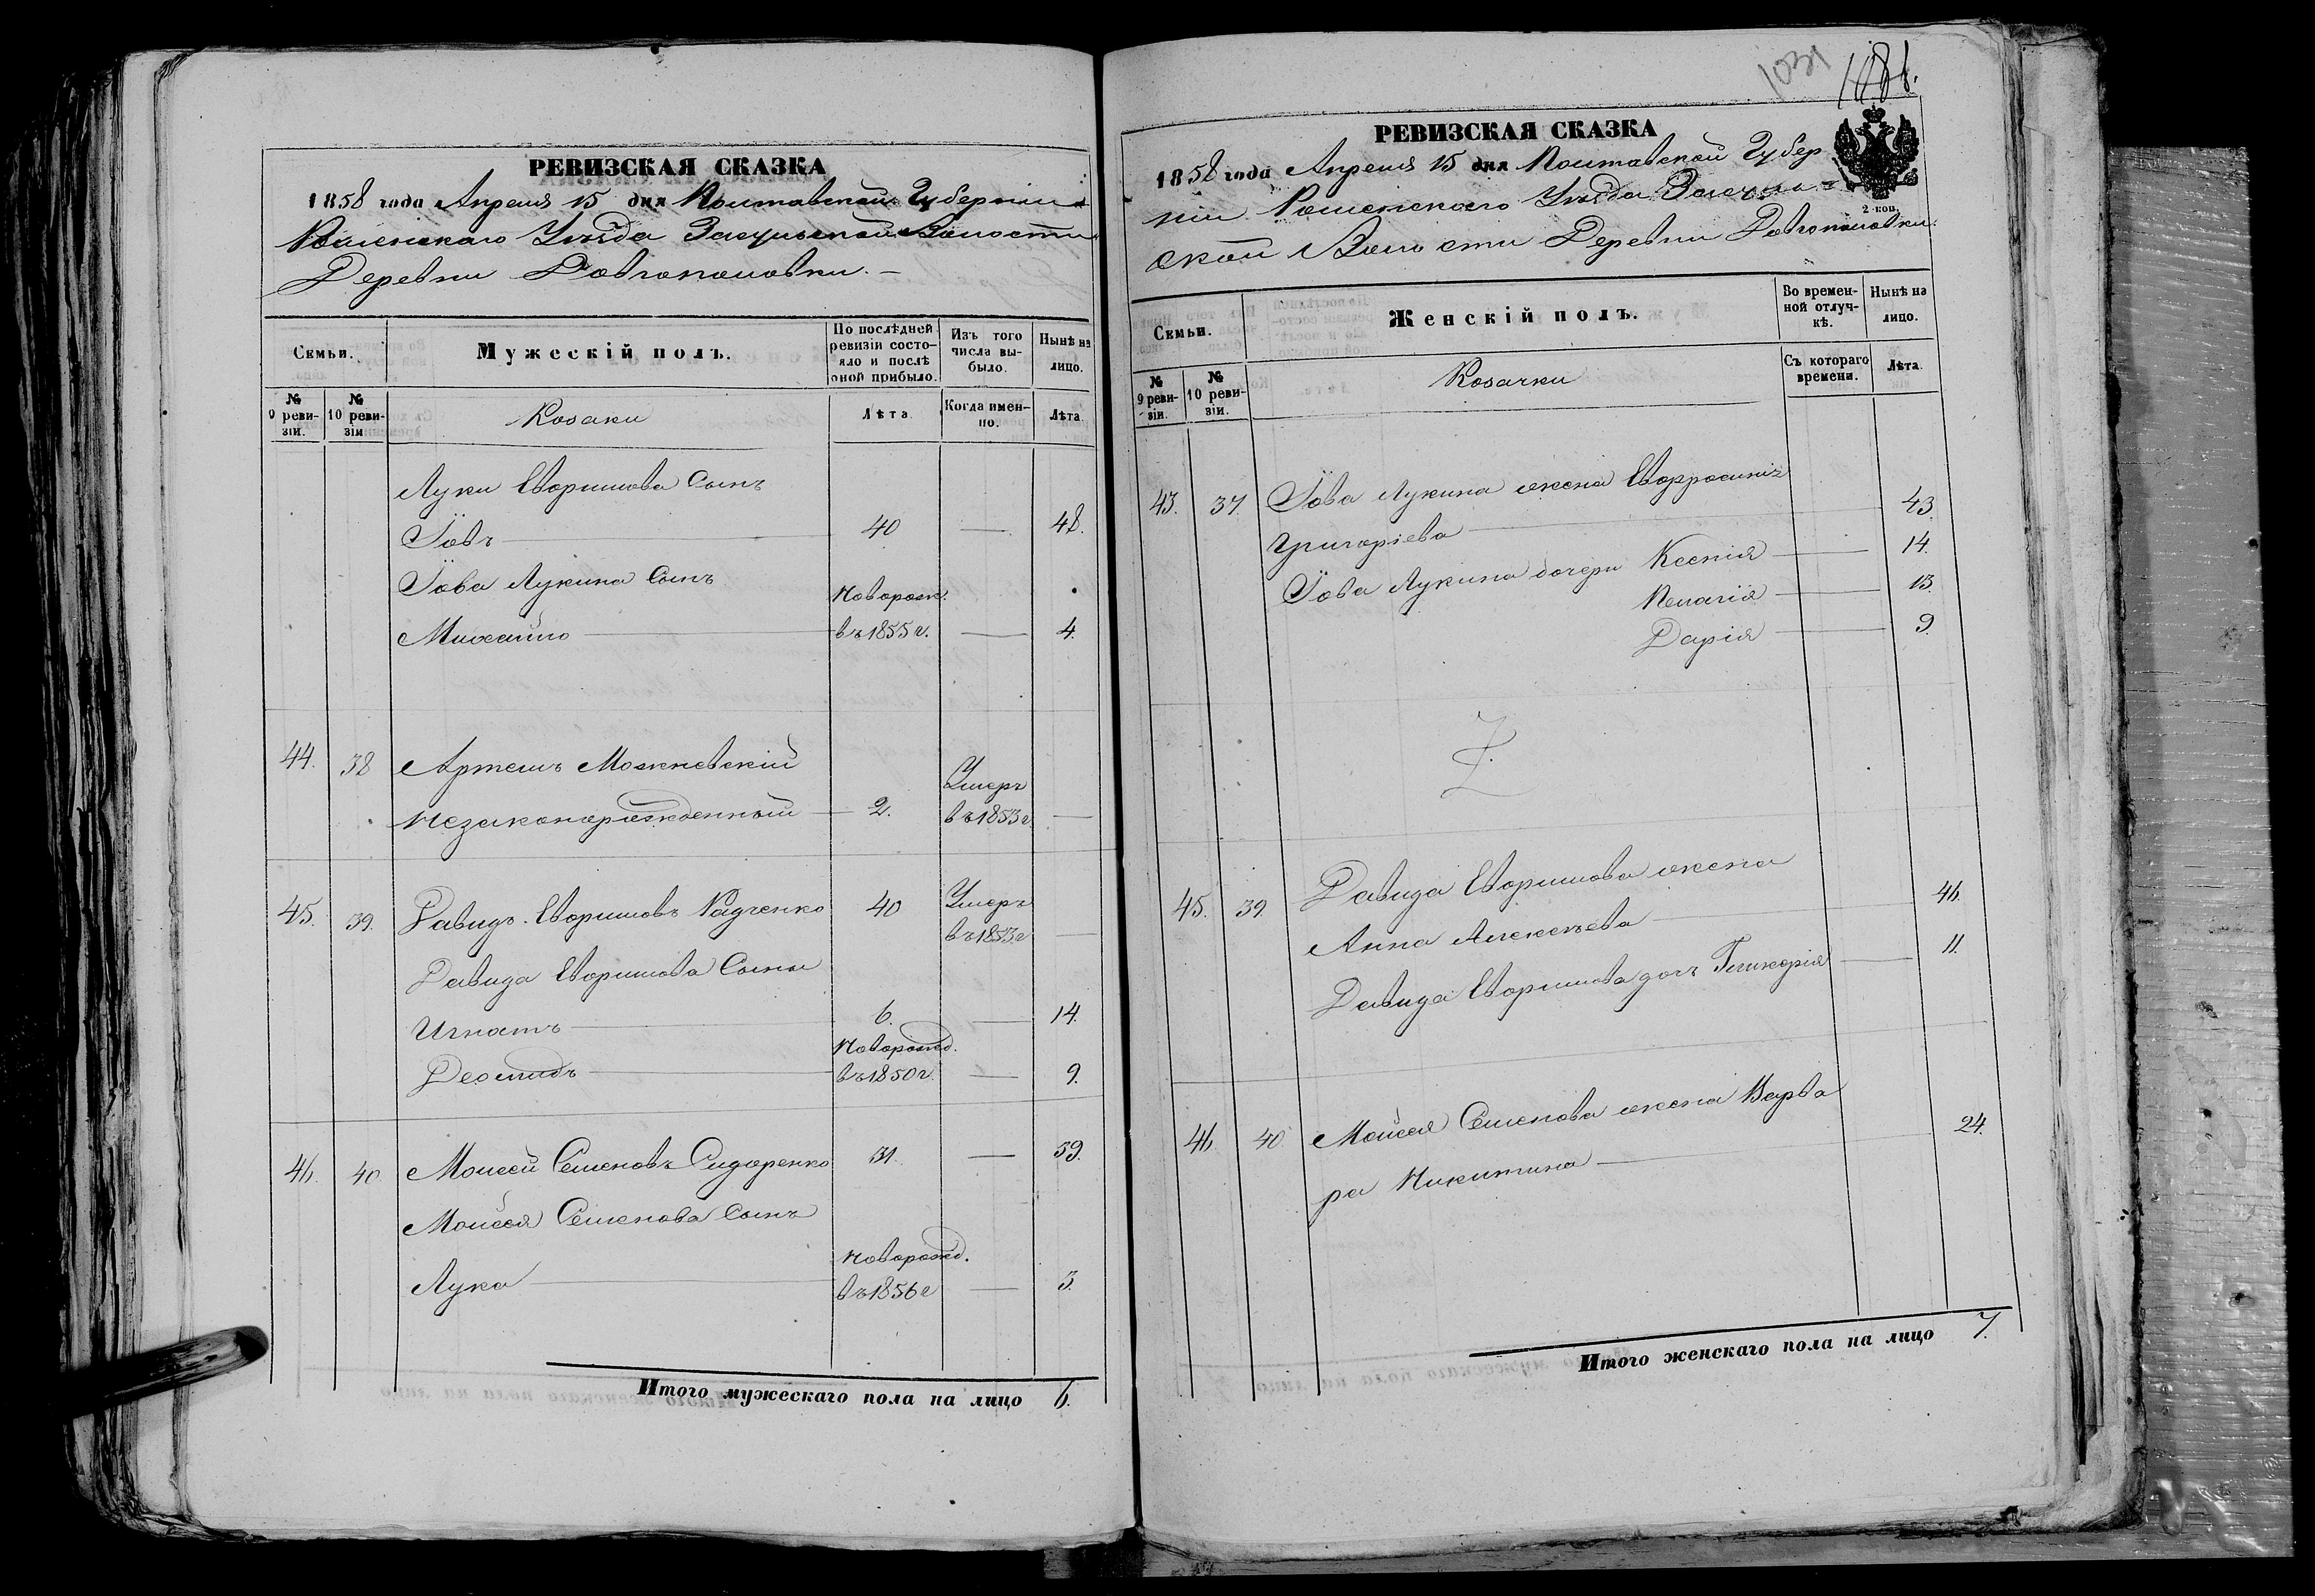 РЕВИЗСКАЯ СКАЗКА
1858 года Апреля 15 дня Полтавской Губернiи
Роменскаго Уѣзда Засульской Волости
Деревни Довгополовки.
Семьи.
Мужескiй полъ.
По послѣдней ревизiи состояло и послѣ оной прибыло.
Изъ того числа выбыло.
Нынѣ на лицо.
№ 9 ревизiи.
№ 10 ревизiи
Козаки
Лѣта
Когда именно.
Лѣта
Луки Евфимова Сынъ
Iовъ 40 — 48.
Iова Лукина Сынъ
Михайло Новорож. въ 1855 г. — 4.
44. 38 Артемъ
незаконорожденный 2. Умеръ въ 1853 г. —
45. 39. Давидъ Радченко 40 Умеръ въ 1853 г —
Давида Сыны
Игнатъ 6. — 14.
Деомидъ Новорожд. въ 1850 г. — 9.
46. 40 Моисей Семеновъ Сидоренко 31. — 39.
Моисея Семенова Сынъ
Лука Новорожд. въ 1856 г — 3.
Итого мужескаго пола на лицо 6.
1031
РЕВИЗСКАЯ СКАЗКА
1858 года Апреля 15 дня Полтавской Губер
нiи Роменскаго Уѣзда Засуль-
ской Волости Деревни Довгополовки.
2 коп.
Семьи.
Женскiй полъ.
Во временной отлучкѣ.
Нынѣ на лицо.
№ 9 ревизiи.
№ 10 ревизiи.
Козачки
Съ котораго времени.
Лѣта
43. 37. Iова Лукина жена Евфросинiя
Григорiева 43.
Iова Лукина дочери Ксенiя — 14.
Пелагiя — 13.
Дарiя — 9.
45. 39. Давида жена
Анна Алексѣева 46.
Давида дочь Гликерiя — 11.
46 40 Моисея Семенова жена Варва
ра Никитина 24.
Итого женскаго пола на лицо 7.